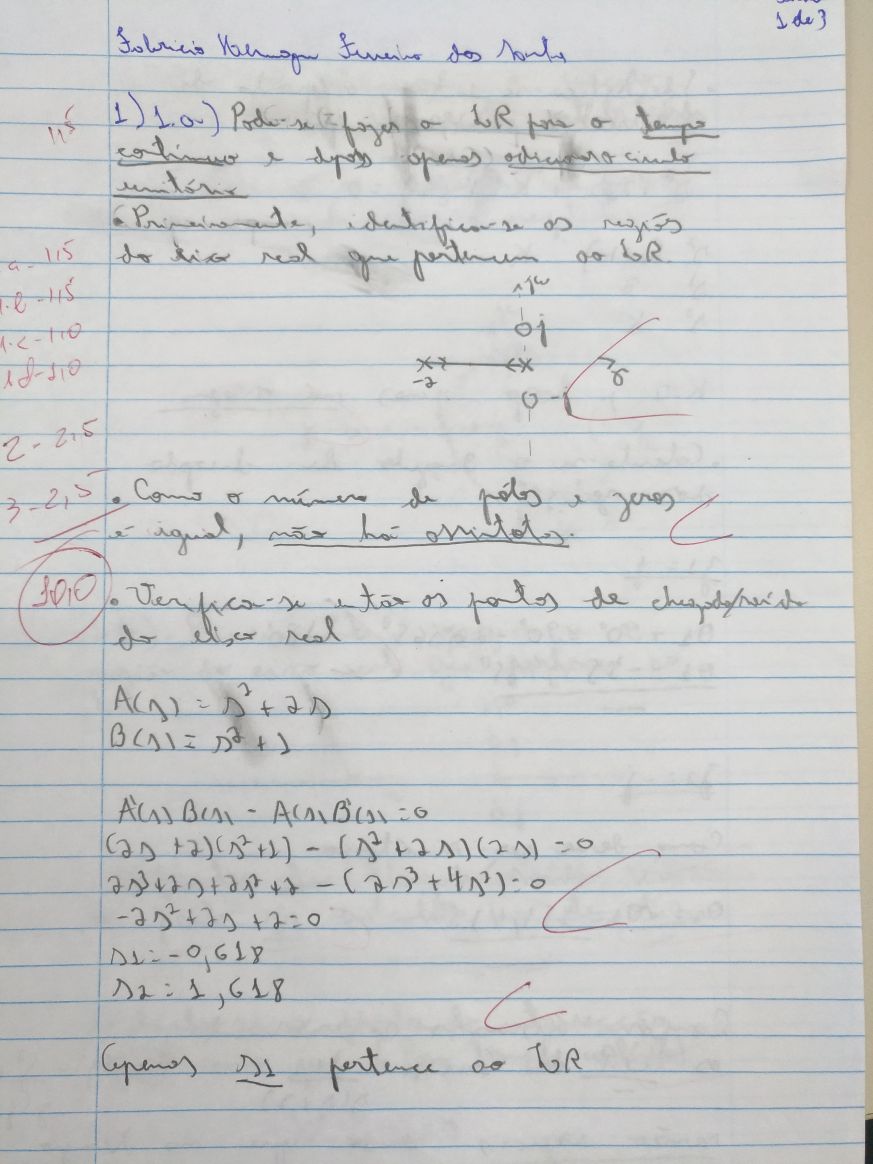 1 de 3
Fabricio Ferreira dos
1,5
1) 1.a) Pode-se fazer o LR para o tempo
contínuo e depois apenas adicionar o circulo
unitário
• Primeiramente, identifica-se as regiões
do eixo real que pertencem ao LR.
a - 1,5
1.b - 1,5
1.c - 1,0
1d - 1,0
2 - 2,5
3 - 2,5
10,0
jw
j
-2
-j
σ
• Como o número de pólos e zeros
é igual, não há assintotas.
• Verifica-se então os pontos de chegada/saida
do eixo real
A(s) = s² + 2s
B(s) = s² + 1
A'(s) B(s) - A(s) B'(s) = 0
(2s + 2)(s² + 1) - (s² + 2s)(2s) = 0
2s³ + 2s + 2s² + 2 - (2s³ + 4s²) = 0
-2s² + 2s + 2 = 0
s1 = -0,618
s2 = 1,618
Apenas s1 pertence ao LR